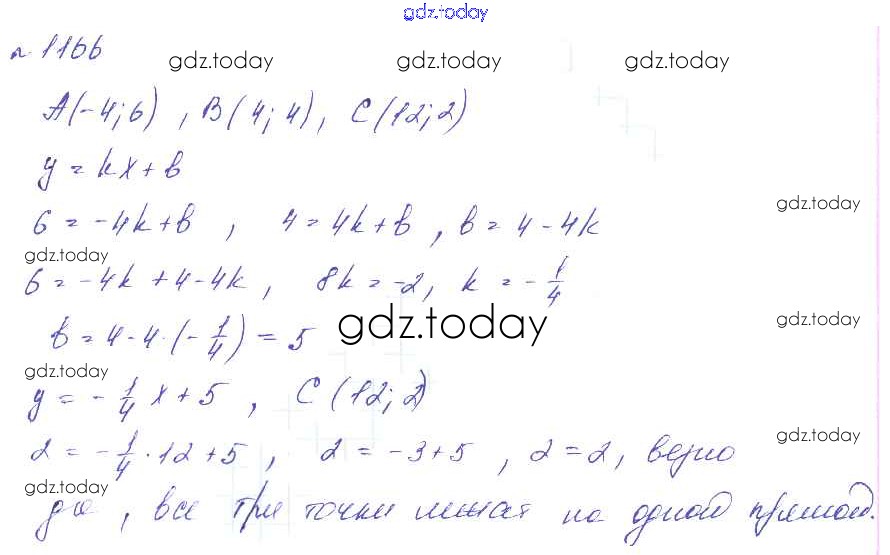 gdz.today
n 1166
gdz.today gdz.today gdz.today
A(-4;6), B(4;4), C(12;2)
y = kx + b
gdz.today
6 = -4k+b, 4 = 4k+b, b = 4-4k
gdz.today
6 = -4k+4-4k, 8k = -2, k = -1/4
gdz.today
b = 4-4·(-1/4) = 5
gdz.today
gdz.today
y = -1/4 x + 5, C(12;2)
gdz.today
2 = -1/4·12+5, 2 = -3+5, 2=2, верно
gdz.today
да, все три точки лежат на одной прямой.